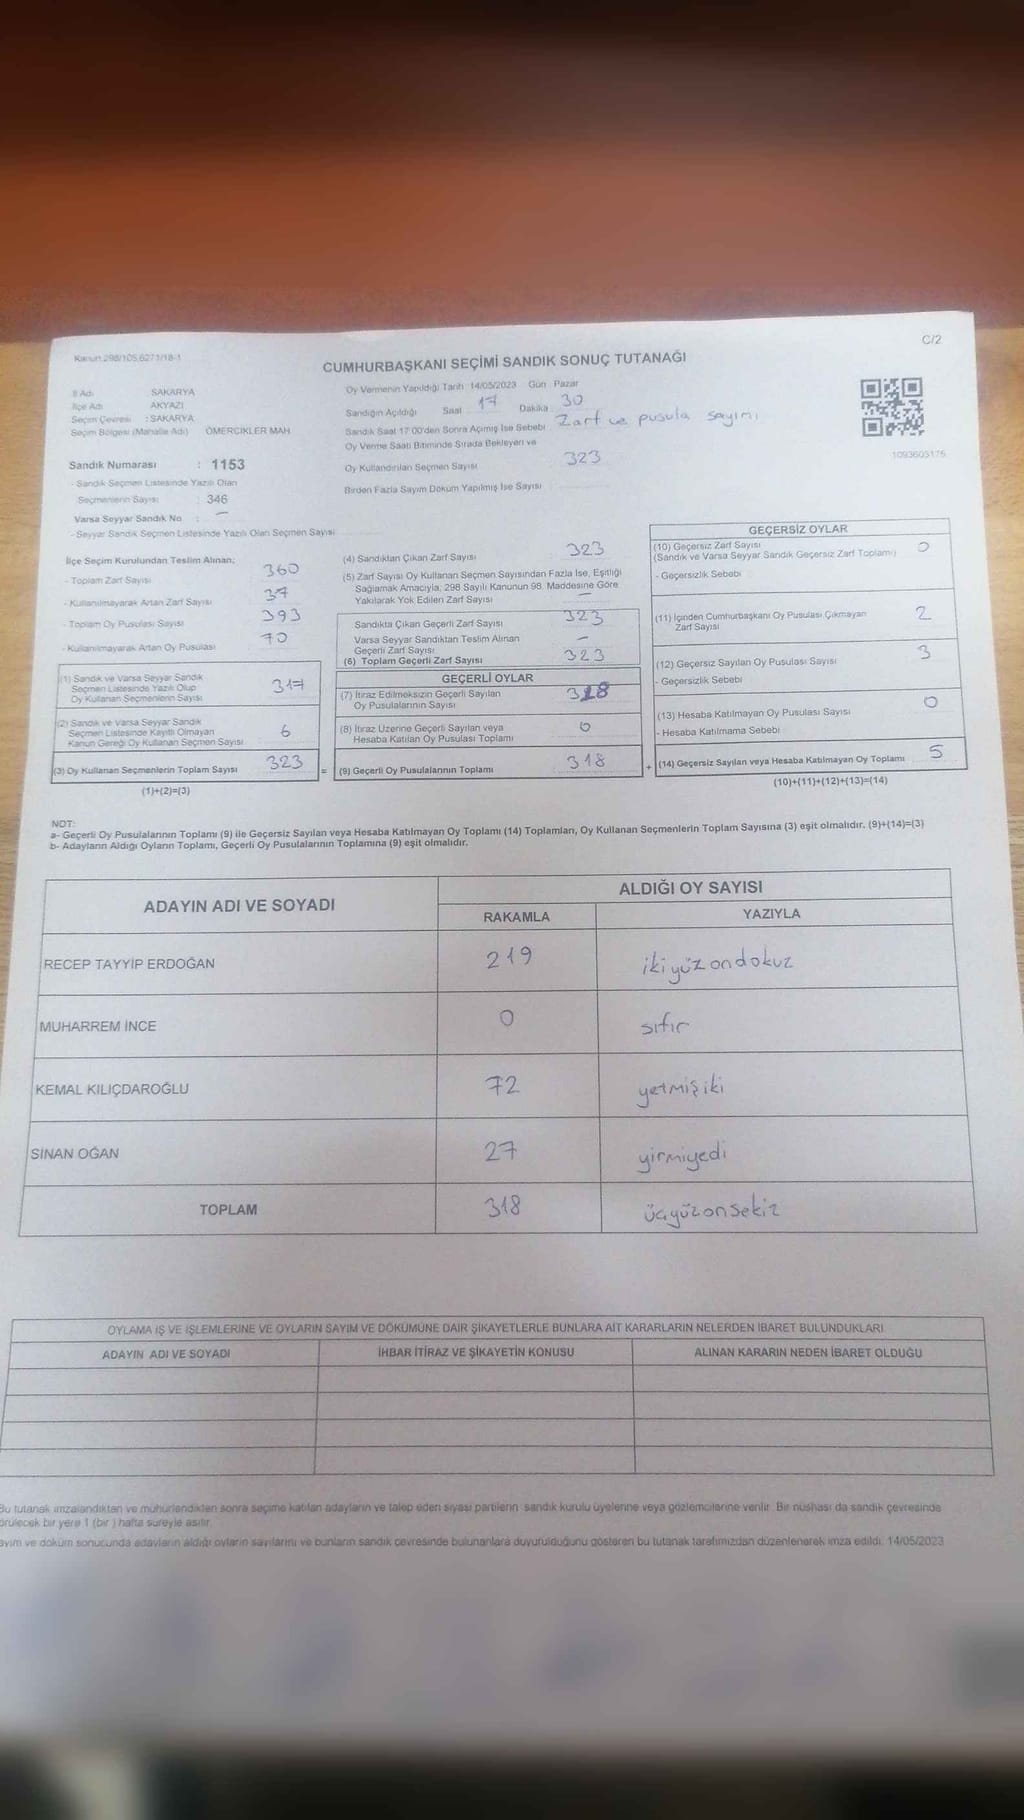 Kanun:298/105,6271/18-1
C/2
CUMHURBAŞKANI SEÇİMİ SANDIK SONUÇ TUTANAĞI
İl Adı SAKARYA
İlçe Adı AKYAZI
Seçim Çevresi : SAKARYA
Seçim Bölgesi (Mahalle Adı) ÖMERCİKLER MAH.
Sandık Numarası : 1153
- Sandık Seçmen Listesinde Yazılı Olan
Seçmenlerin Sayısı : 346
Varsa Seyyar Sandık No : —
- Seyyar Sandık Seçmen Listesinde Yazılı Olan Seçmen Sayısı
Oy Vermenin Yapıldığı Tarih 14/05/2023 Gün Pazar
Sandığın Açıldığı Saat 17 Dakika 30
Sandık Saat 17:00'den Sonra Açımış İse Sebebi Zarf ve pusula sayımı
Oy Verme Saati Bitiminde Sırada Bekleyen ve
Oy Kullandırılan Seçmen Sayısı 323
Birden Fazla Sayım Döküm Yapılmış İse Sayısı
1093603175
İlçe Seçim Kurulundan Teslim Alınan;
- Toplam Zarf Sayısı 360
- Kullanılmayarak Artan Zarf Sayısı 37
- Toplam Oy Pusulası Sayısı 393
- Kullanılmayarak Artan Oy Pusulası 70
(1) Sandık ve Varsa Seyyar Sandık
Seçmen Listesinde Yazılı Olup
Oy Kullanan Seçmenlerin Sayısı 317
(2) Sandık ve Varsa Seyyar Sandık
Seçmen Listesinde Kayıtlı Olmayan
Kanun Gereği Oy Kullanan Seçmen Sayısı 6
(3) Oy Kullanan Seçmenlerin Toplam Sayısı 323
(1)+(2)=(3)
(4) Sandıktan Çıkan Zarf Sayısı 323
(5) Zarf Sayısı Oy Kullanan Seçmen Sayısından Fazla İse, Eşitliği
Sağlamak Amacıyla, 298 Sayılı Kanunun 98. Maddesine Göre
Yakılarak Yok Edilen Zarf Sayısı —
Sandıkta Çıkan Geçerli Zarf Sayısı 323
Varsa Seyyar Sandıktan Teslim Alınan
Geçerli Zarf Sayısı —
(6) Toplam Geçerli Zarf Sayısı 323
GEÇERLİ OYLAR
(7) İtiraz Edilmeksizin Geçerli Sayılan
Oy Pusulalarının Sayısı 318
(8) İtiraz Üzerine Geçerli Sayılan veya
Hesaba Katılan Oy Pusulası Toplamı 0
= (9) Geçerli Oy Pusulalarının Toplamı 318
GEÇERSİZ OYLAR
(10) Geçersiz Zarf Sayısı 0
(Sandık ve Varsa Seyyar Sandık Geçersiz Zarf Toplamı)
- Geçersizlik Sebebi
(11) İçinden Cumhurbaşkanı Oy Pusulası Çıkmayan
Zarf Sayısı 2
(12) Geçersiz Sayılan Oy Pusulası Sayısı 3
- Geçersizlik Sebebi
(13) Hesaba Katılmayan Oy Pusulası Sayısı 0
- Hesaba Katılmama Sebebi
+ (14) Geçersiz Sayılan veya Hesaba Katılmayan Oy Toplamı 5
(10)+(11)+(12)+(13)=(14)
NOT:
a- Geçerli Oy Pusulalarının Toplamı (9) ile Geçersiz Sayılan veya Hesaba Katılmayan Oy Toplamı (14) Toplamları, Oy Kullanan Seçmenlerin Toplam Sayısına (3) eşit olmalıdır. (9)+(14)=(3)
b- Adayların Aldığı Oyların Toplamı, Geçerli Oy Pusulalarının Toplamına (9) eşit olmalıdır.
ADAYIN ADI VE SOYADI ALDIĞI OY SAYISI
RAKAMLA YAZIYLA
RECEP TAYYİP ERDOĞAN 219 ikiyüzondokuz
MUHARREM İNCE 0 sıfır
KEMAL KILIÇDAROĞLU 72 yetmişiki
SİNAN OĞAN 27 yirmiyedi
TOPLAM 318 üçyüzonsekiz
OYLAMA İŞ VE İŞLEMLERİNE VE OYLARIN SAYIM VE DÖKÜMÜNE DAİR ŞİKAYETLERLE BUNLARA AİT KARARLARIN NELERDEN İBARET BULUNDUKLARI
ADAYIN ADI VE SOYADI İHBAR İTİRAZ VE ŞİKAYETİN KONUSU ALINAN KARARIN NEDEN İBARET OLDUĞU
Bu tutanak imzalandıktan ve mühürlendikten sonra seçime katılan adayların ve talep eden siyasi partilerin sandık kurulu üyelerine veya gözlemcilerine verilir. Bir nüshası da sandık çevresinde
örülecek bir yere 1 (bir ) hafta süreyle asılır.
ayım ve döküm sonucunda adayların aldığı oyların sayılarını ve bunların sandık çevresinde bulunanlara duyurulduğunu gösteren bu tutanak tarafımızdan düzenlenerek imza edildi. 14/05/2023